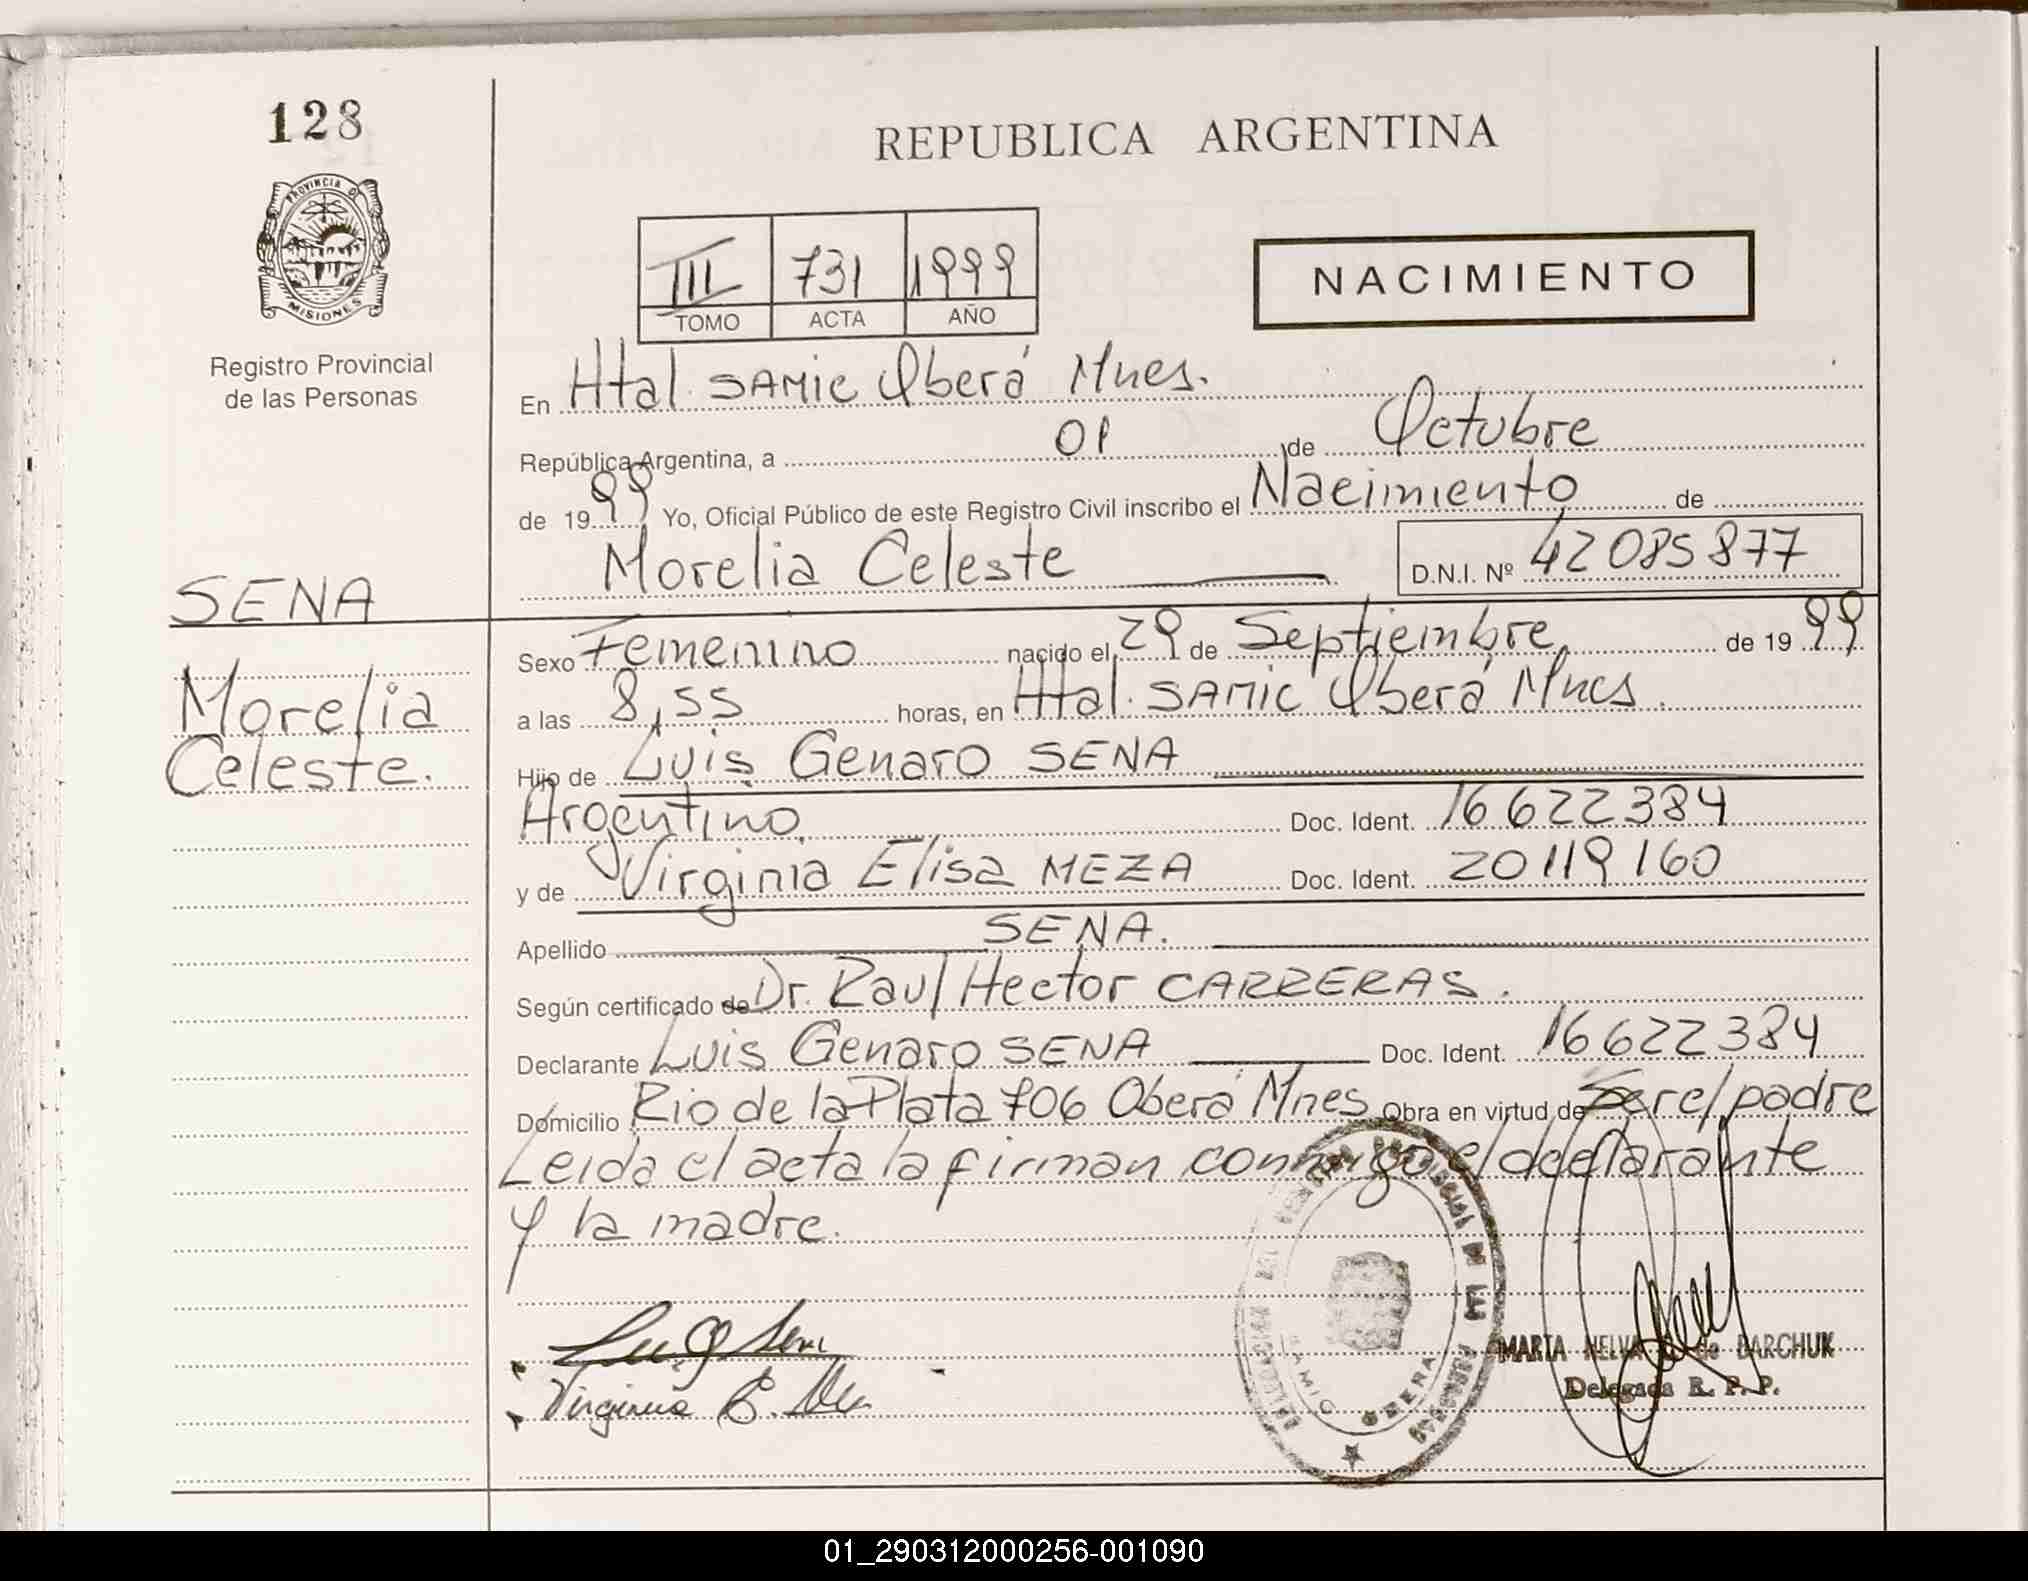 128
REPUBLICA ARGENTINA
PROVINCIA D
MISIONES
III 731 1999
TOMO ACTA AÑO
NACIMIENTO
Registro Provincial
de las Personas
En Htal. SAMIC Oberá Mnes.
República Argentina, a 01 de Octubre
de 1999 Yo, Oficial Público de este Registro Civil inscribo el Nacimiento de
Morelia Celeste D.N.I. Nº 42085877
SENA
Morelia
Celeste.
Sexo Femenino nacido el 29 de Septiembre de 1999
a las 8,55 horas, en Htal. SAMIC Oberá Mnes.
Hijo de Luis Genaro SENA
Argentino Doc. Ident. 16622384
y de Virginia Elisa MEZA Doc. Ident. 20119160
Apellido SENA.
Según certificado de Dr. Raul Hector CARRERAS.
Declarante Luis Genaro SENA Doc. Ident. 16622384
Domicilio Rio de la Plata 706 Oberá Mnes Obra en virtud de Ser el padre
Leida el acta la firman conmigo el declarante
y la madre.
Virginia E.
MARTA NELVA de BARCHUK
Delegada R. P. P.
OBERA
01_290312000256-001090